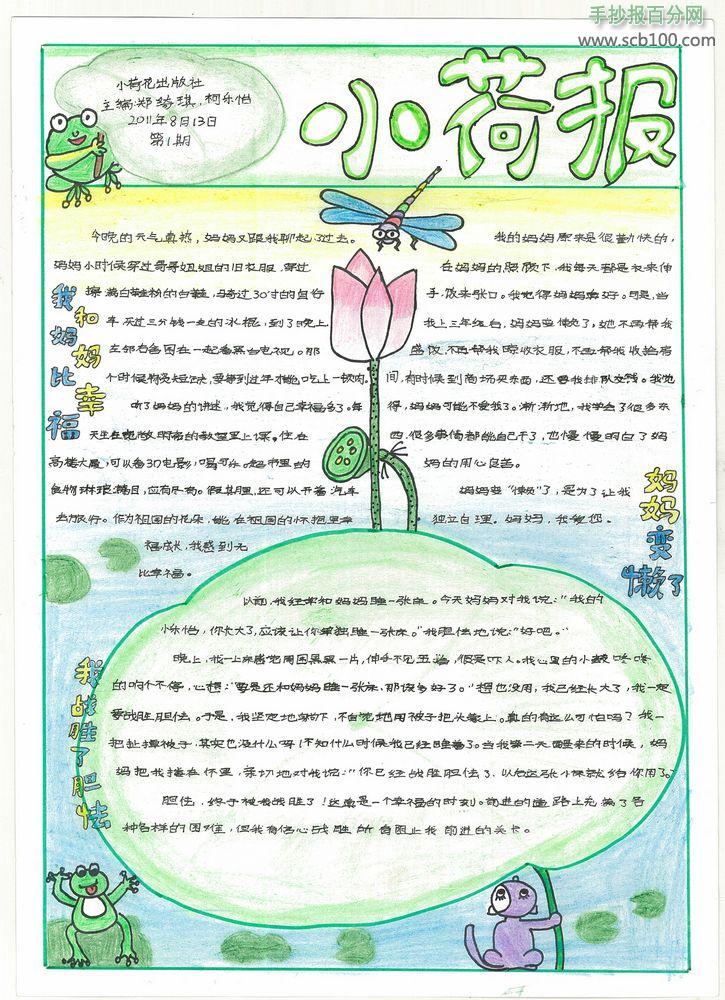 手抄报百分网
www.scb100.com
小荷花出版社
主编:郑绮琪,柯乐怡
2011年8月13日
第1期
小荷报
我和妈妈比幸福
今晚的天气真热,妈妈又跟我聊起了过去。
妈妈小时候穿过哥哥姐姐的旧衣服,穿过
擦满白鞋粉的白鞋,骑过30寸的自行
车,买过三分钱一支的冰棍,到了晚上
左邻右舍围在一起看黑白电视。那
个时候物资短缺,要等到过年才能吃上一顿肉。
听了妈妈的讲述,我觉得自己幸福多了。每
天坐在宽敞明亮的教室里上课。住在
高楼大厦,可以看3D电影,喝可乐。超市里的
食物琳琅满目,应有尽有。假期里,还可以开着汽车
去旅行。作为祖国的花朵,能在祖国的怀抱里幸
福成长,我感到无
比幸福。
妈妈变懒了
我的妈妈原来是很勤快的,
在妈妈的照顾下,我每天都是衣来伸
手,饭来张口。我觉得妈妈真好。可是,当
我上三年级后,妈妈变懒了,她不再帮我
盛饭,不再帮我晾收衣服,不再帮我收拾房
间,有时候到商场买东西,还要我排队交钱。我觉
得,妈妈可能不爱我了。渐渐地,我学会了很多东
西,很多事情都能自己干了,也慢慢明白了妈
妈的用心良苦。
妈妈变“懒”了,是为了让我
独立自理。妈妈,我爱您。
我战胜了胆怯
以前,我经常和妈妈睡一张床。今天妈妈对我说:“我的
小乐怡,你长大了,应该让你单独睡一张床。”我胆怯地说:“好吧。”
晚上,我一上床感觉周围黑黑一片,伸手不见五指,很是吓人。我心里的小鼓咚咚
的响个不停,心想:“要是还和妈妈睡一张床,那该多好了。”想也没用,我已经长大了,我一定
要战胜胆怯。于是,我坚定地躺下,不自觉地用被子把头蒙上。真的有这么可怕吗?我一
把扯掉被子,其实也没什么呀!不知什么时候我已经睡着了。当我第二天醒来的时候,妈
妈把我搂在怀里,亲切地对我说:“你已经战胜胆怯了,以后这张小床就给你用了。”
胆怯,终于被我战胜了!这真是一个幸福的时刻。前进的道路上充满了各
种各样的困难,但我有信心战胜所有阻止我前进的关卡。